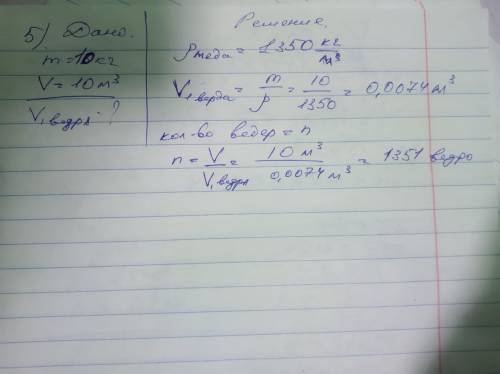 5) Дано.
m = 10 кг
V = 10 м³
V₁ ведра - ?
Решение.
ρ меда = 1350 кг/м³
V₁ ведра = m/ρ = 10/1350 = 0,0074 м³
кол-во ведер = n
n = V/V₁ ведра = 10 м³/0,0074 м³ = 1351 ведро